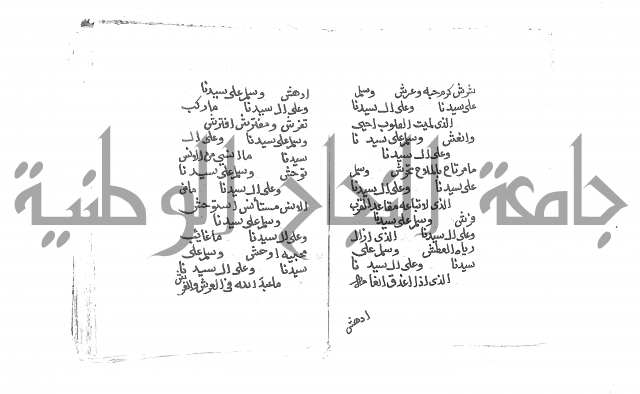 شرش كرم حبه وعرش وسلم
على سيدنا وعلى ال سيدنا
الذى لميت القلوب احيى
وانعش وسلم على سيدنا
وعلى ال سيدنا
ما مرتاع تحرش وسلم
على سيدنا وعلى ال سيدنا
الذى لاتباعه مقاعد
وفرش وسلم على سيدنا
وعلى ال سيدنا الذى ازال
رياه العطش وسلم على
سيدنا وعلى ال سيدنا
الذى اذا
ادهش
ادهش وسلم على سيدنا
وعلى ال سيدنا ما ركب
تفرش ومفترش افترش
وسلم على سيدنا وعلى ال
سيدنا ما النبي من الانس
توحش وسلم على سيدنا
وعلى ال سيدنا ما فى
الانس مستانس استوحش
وسلم على سيدنا
وعلى ال سيدنا ما غاب
محبيه اوحش وسلم على
سيدنا وعلى ال سيدنا
ما عبد الله فى العرش والفرش
جامعة النجاح الوطنية